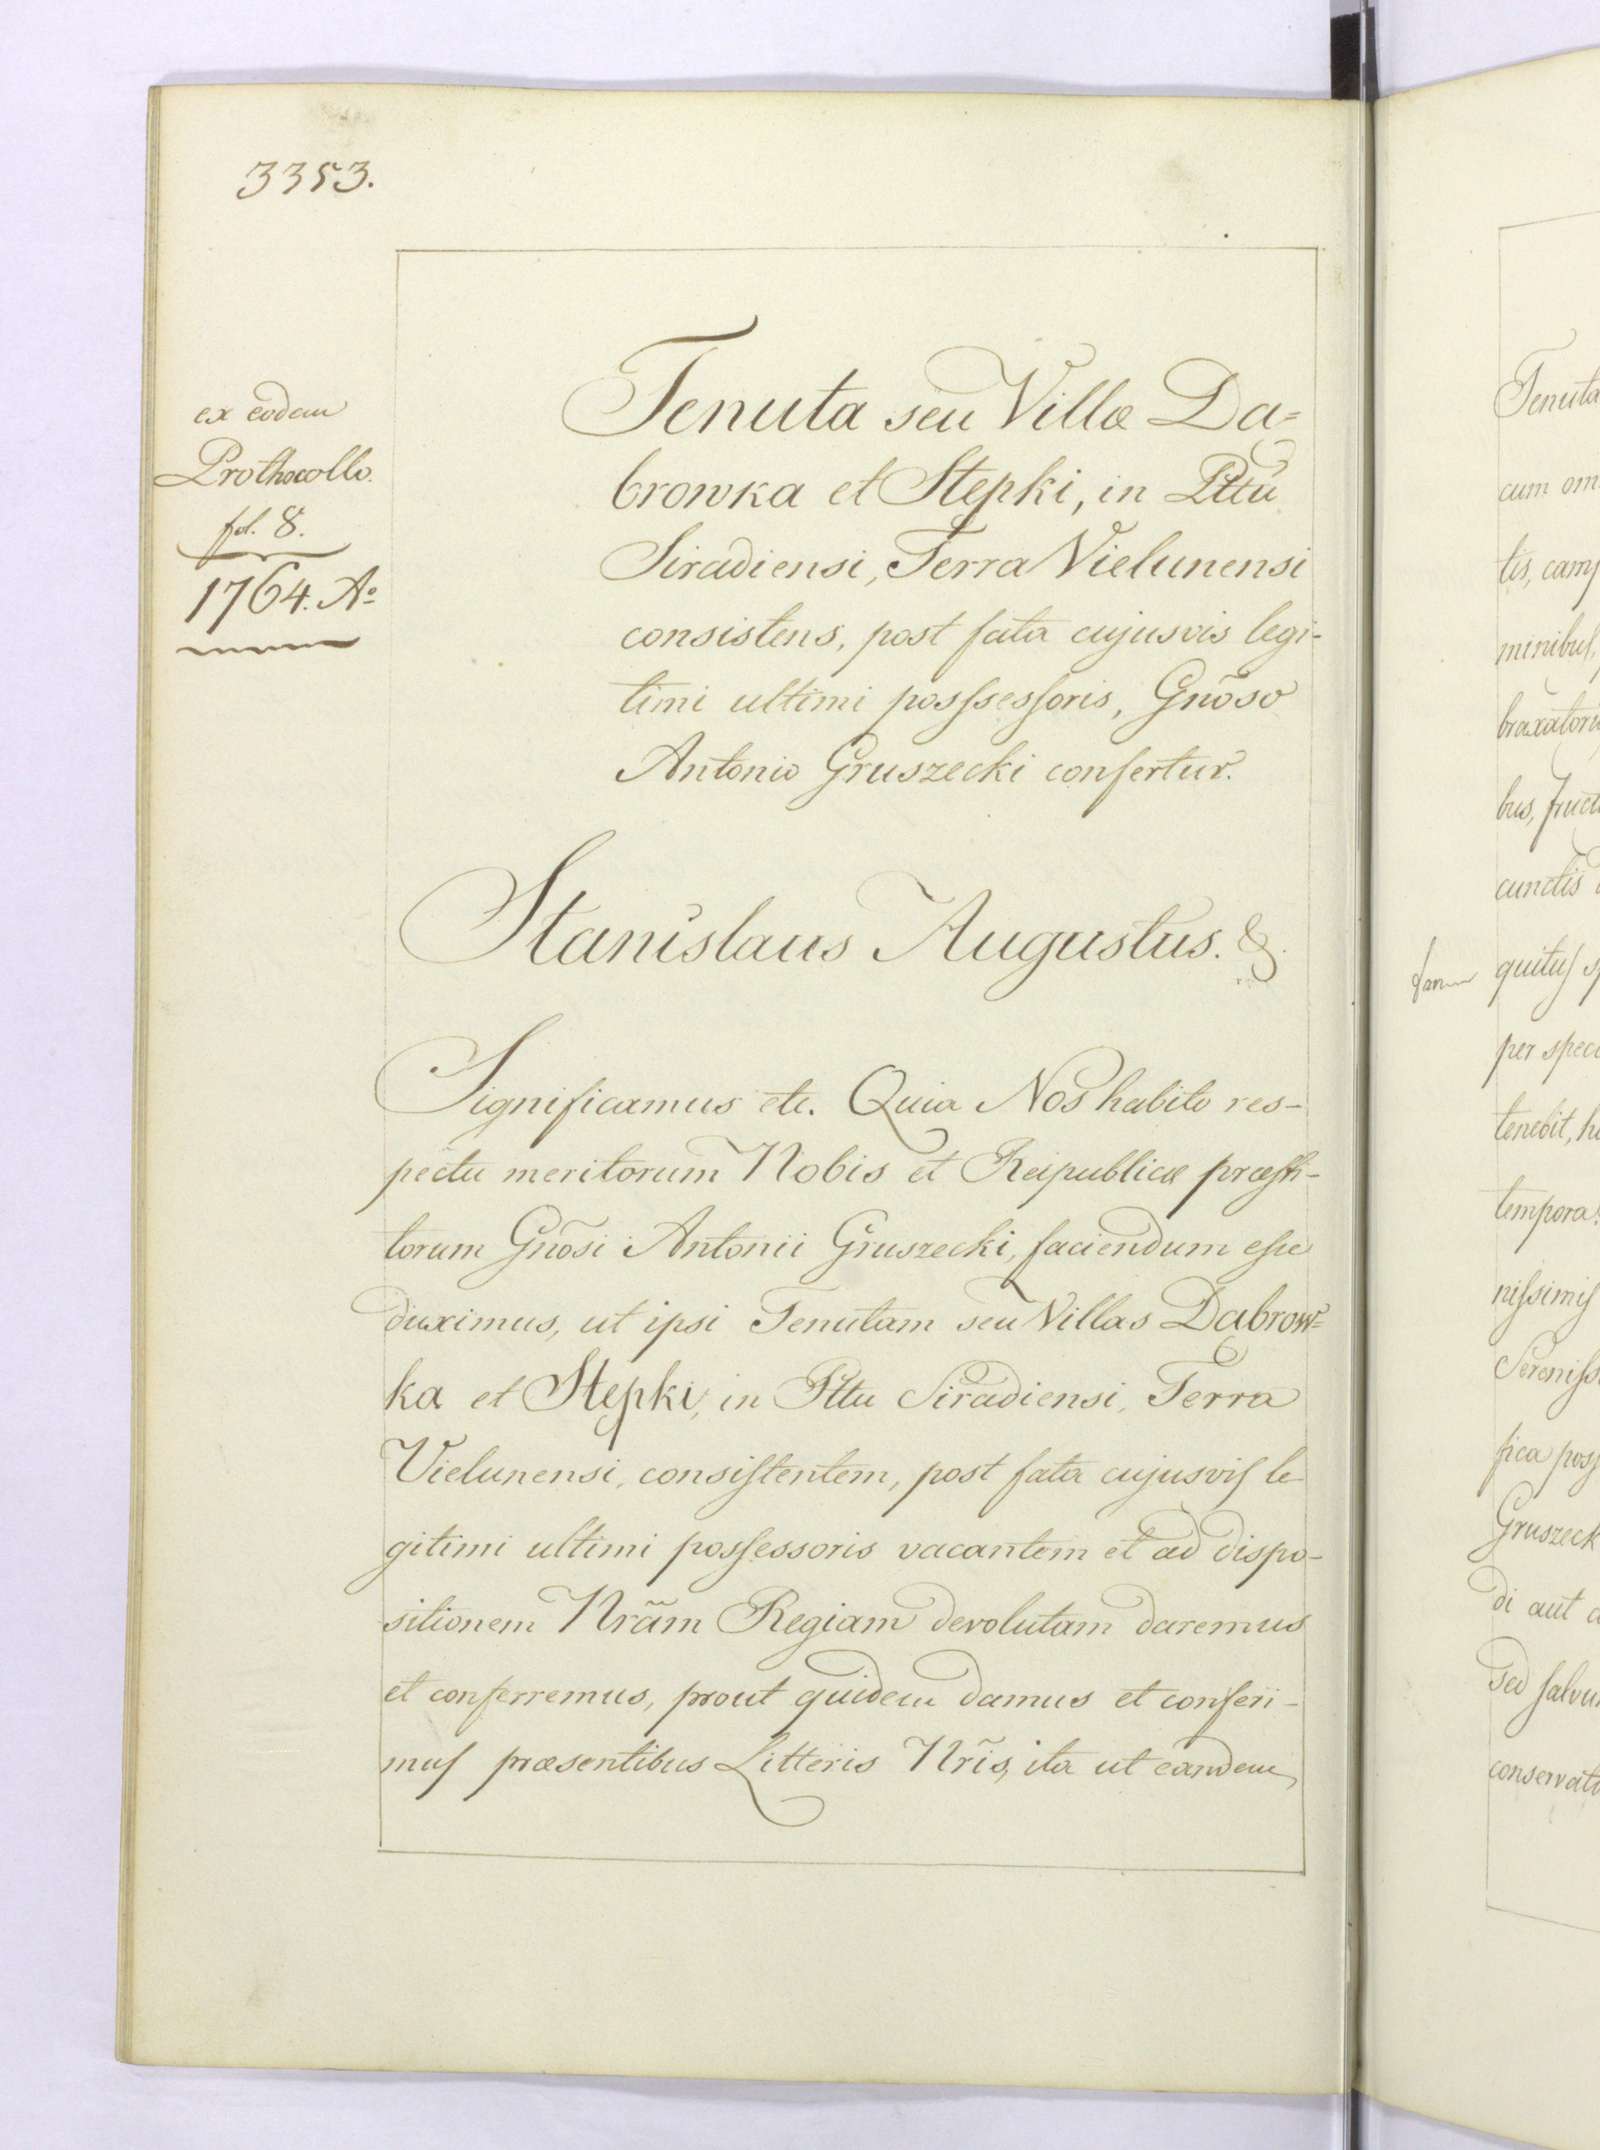 3353.
ex eodem
Prothocollo.
fol. 8.
1764. Aº
Tenuta seu Villæ Da=
browka et Stepki, in Pttu
Siradiensi, Terra Vielunensi
consistens, post fata cujusvis legi-
timi ultimi possessoris, Gnõso
Antonio Gruszecki confertur.
Stanislaus Augustus. &.
Significamus etc. Quia Nos habito res-
pectu meritorum Nobis et Reipublicæ præsti-
torum Gnõsi Antonii Gruszecki, faciendum esse
duximus, ut ipsi Tenutam seu Villas Dabrow=
ka et Stepki, in Pttu Siradiensi, Terra
Vielunensi, consistentem, post fata cujusvis le
gitimi ultimi possessoris vacantem et ad dispo-
sitionem Nrãm Regiam devolutam daremus
et conferremus, prout quidem damus et conferi-
mus præsentibus Litteris Nrĩs, ita ut eandem
Tenuta
cum om
tis, camp
minibus,
braxatori
bus, fruct
cunctis
quitus sp
per speci
tenebit, h
tempora
nissimis
Sereniss
fica poss
Gruszeck
di aut a
sed salvu
conservati